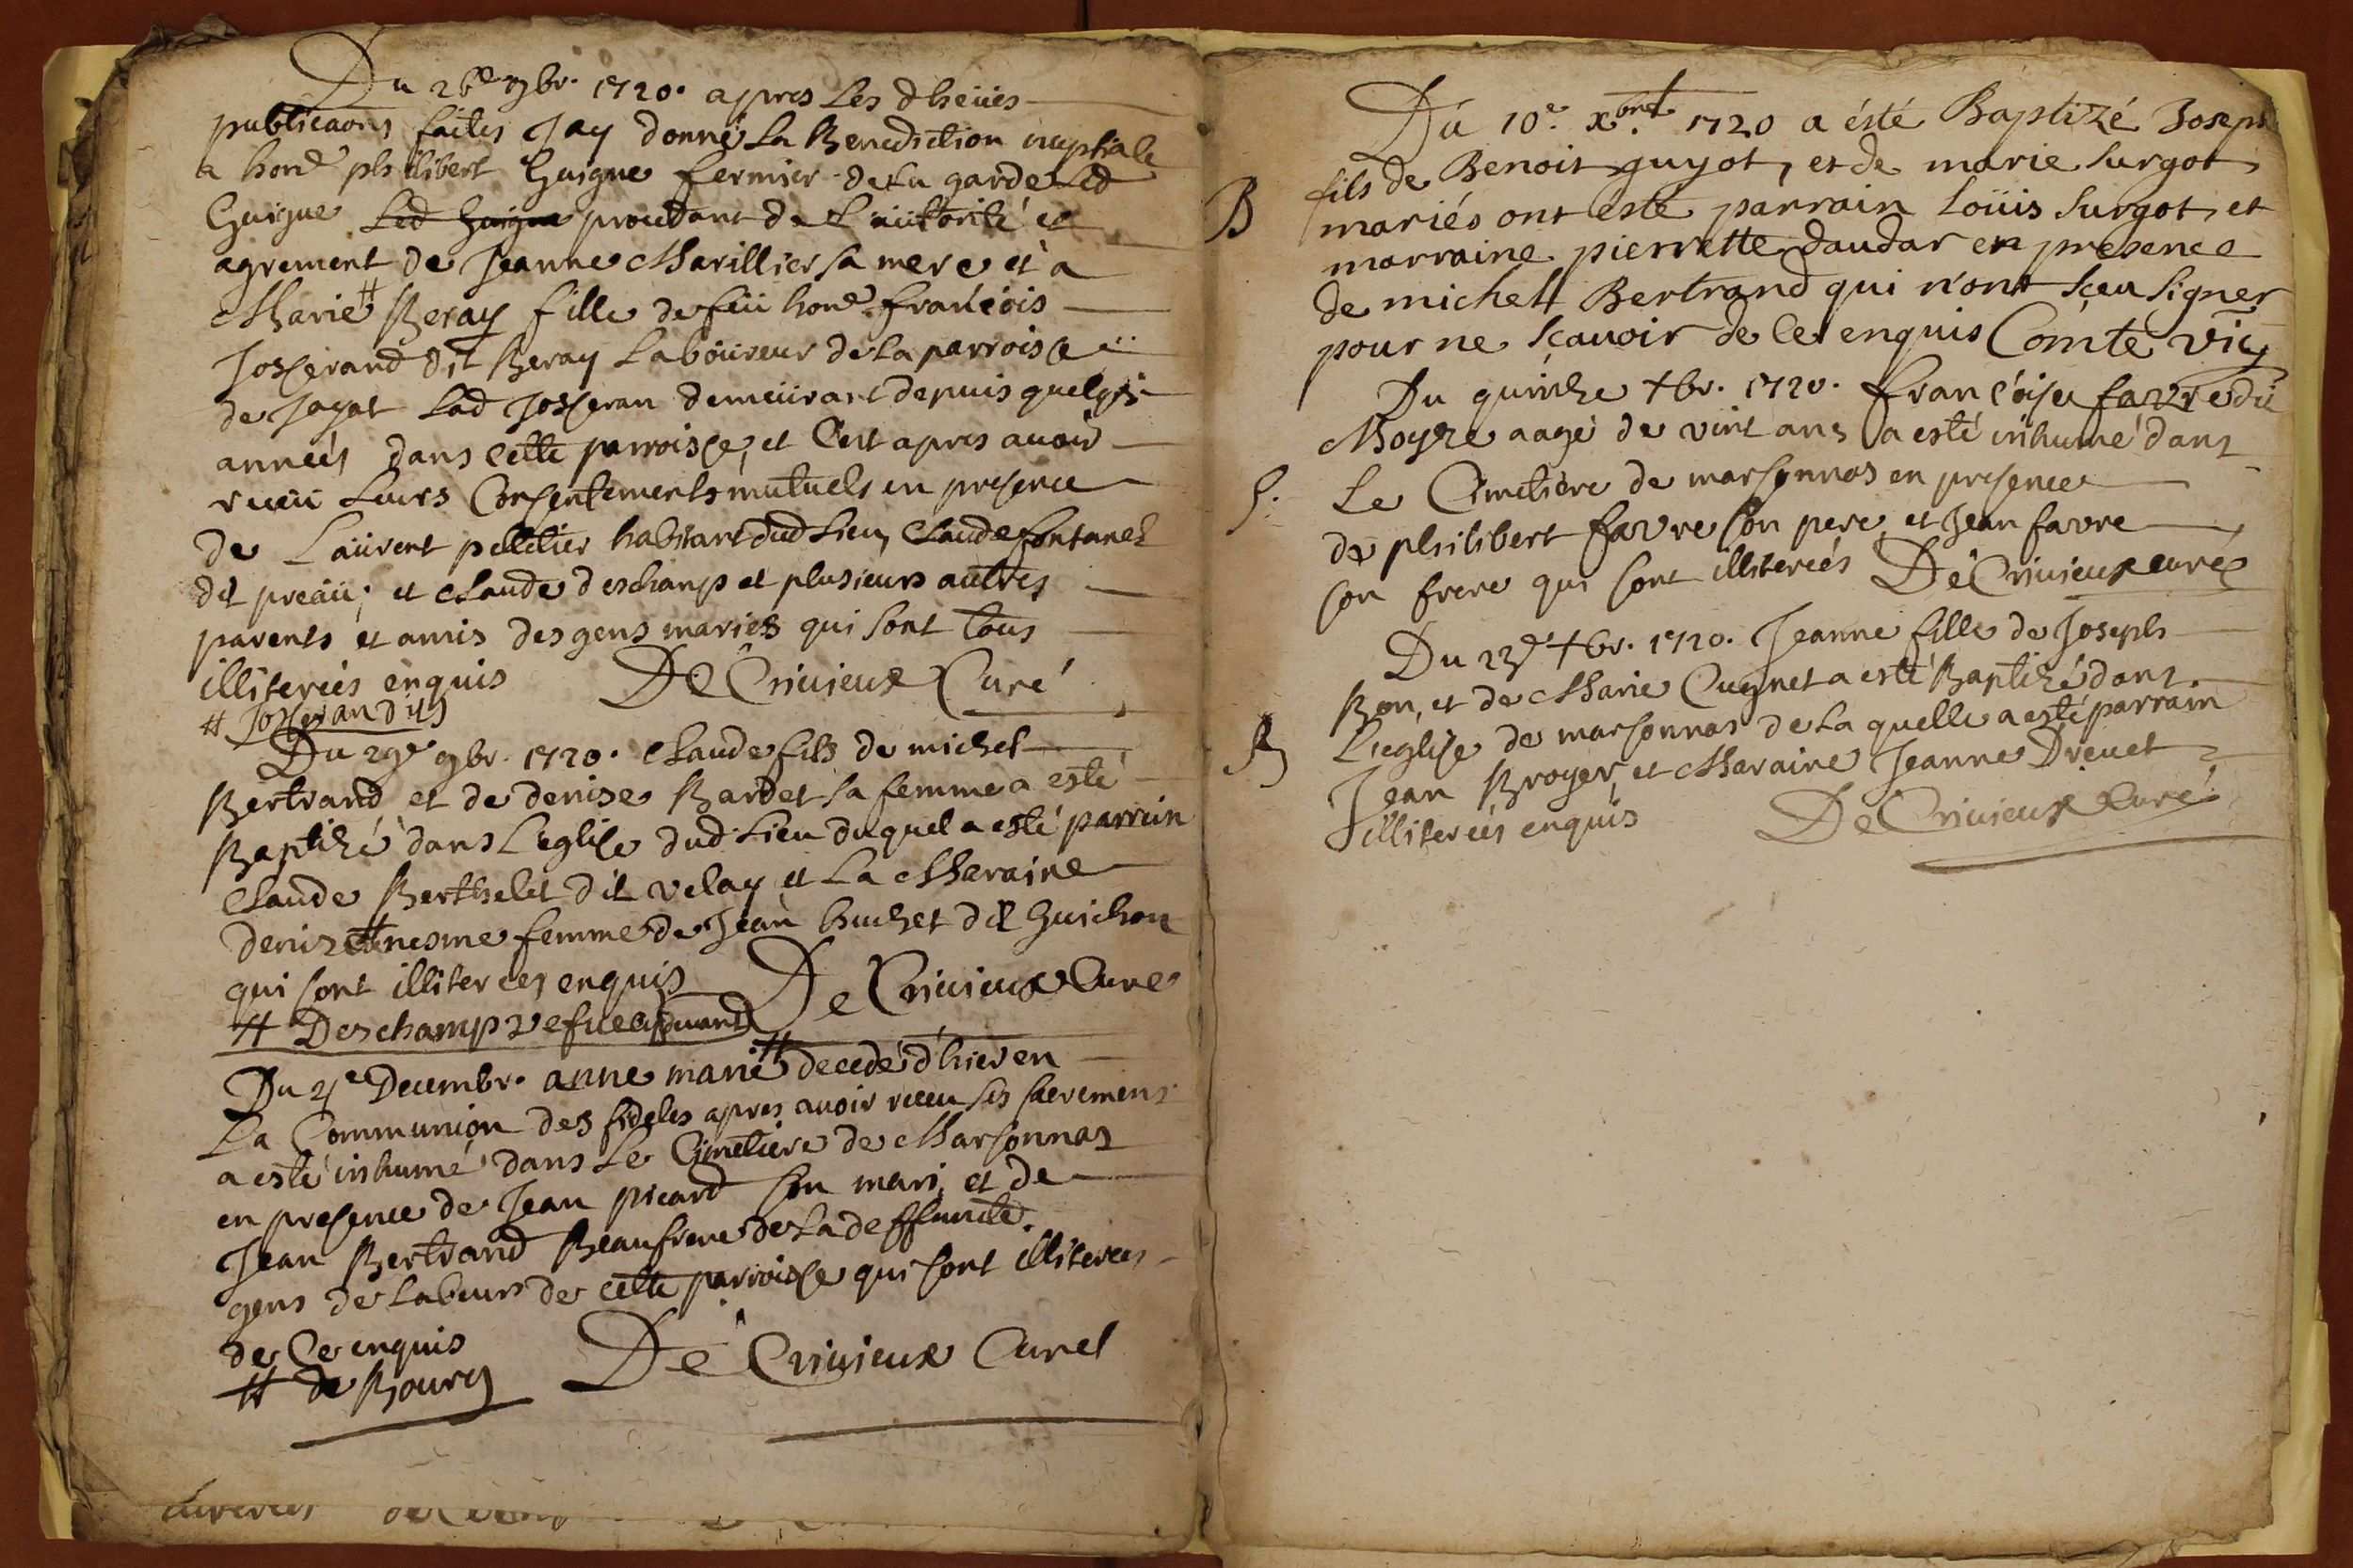 Du 26e 9br. 1720. apres Les dheües
publicaons faites Jay donné La Benediction nuptiale
a hond philibert Guigue fermier de La garde Led
Guigue Led Guigue proudant de L'auttorité et
agrement de Jeanne Marillier sa mere et a
Marie # Beray fille de feü hond françois
Josserand dit Beray Laboüreur de La parroisse
de Jayat Lad Josseran demeürant depuis quelqes
années dans cette parroisse, et C'est apres auoir
receü Leurs Consentements mutuels en presence
de Laürent pelletier habitant dud Lieu, Claude fontanel
dit preaü; et Claude deschamps et plusieurs autres
parents et amis des gens mariés qui sont tous
illiterées enquis De Criuieux Curé
# Josserand dit
Du 29e 9br. 1720. Claude fils de michel
Bertrand et de denise Bardet sa femme a esté
Baptizé dans L'eglise dud Lieu duquel a esté parrin
Claude Berthelet dit velay et La Maraine
denize # nesme femme de Jean buchet dit Guichon
qui sont illiterees enquis De Criuieux Curé
# Deschamp
Du 4e Decembr. anne marie # decedé d'hier en
La Communion des fideles apres auoir receu ses sacremens
a esté inhumé dans Le Cimetiere de Marsonnas
en presence de Jean picard son mari, et de
Jean Bertrand Beaufrere de La deffuncte.
gens de Labeurs de cette parroisse qui sont illiterees
de Ce enquis De Criuieux Curé
# de Bourg
Du 10e. xbre. 1720 a ésté Baptizé Joseph
fils de Benoit guyot, et de marie surgot
B mariés ont esté parrain Loüis surgot, et
marraine pierrette daudar en presence
de michel Bertrand qui n'ont sçeu signer
pour ne sçauoir de Ce enquis Comte vic
Du quinze Xbr. 1720. françoise favre dit
Moyze aagé de vint ans a esté inhumé dans
S. Le Cimetiere de marsonnas en presence
de philibert favre son pere, et Jean favre
son frere qui sont illiterées De Criuieux curé
Du 23e Xbr. 1720. Jeanne fille de Joseph
Bon, et de Marie Cugnet a esté Baptizé dans
B L'eglise de marsonnas de La quelle a esté parrain
Jean Broyer, et Maraine Jeanne Dreuet
illiterées enquis De Criuieux Curé